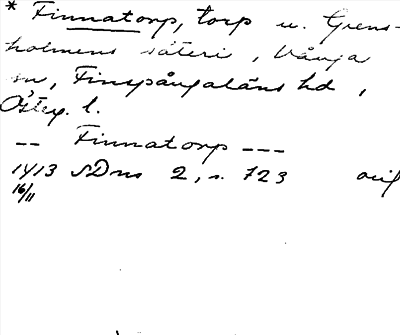 * Finnatorp, torp u. Grens-
holmens säteri, Vånga
sn, Finspångaläns hd,
Östog. l.
-- Finnatorp ---
1413 SDns 2, s. 723 orig
16/11